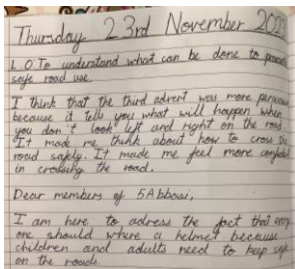 Thursday 23rd November 2023
L.O: To understand what can be done to promote
safe road use.
I think that the third advert was more persuasive
because it tells you what will happen when
you don't look left and right on the road.
It made me think about how to cross the
road safely. It made me feel more confident
in crossing the road.
Dear members of 5Abbasi,
I am here to adress the fact that every
one should where a helmet because
children and adults need to keep safe
on the roads.